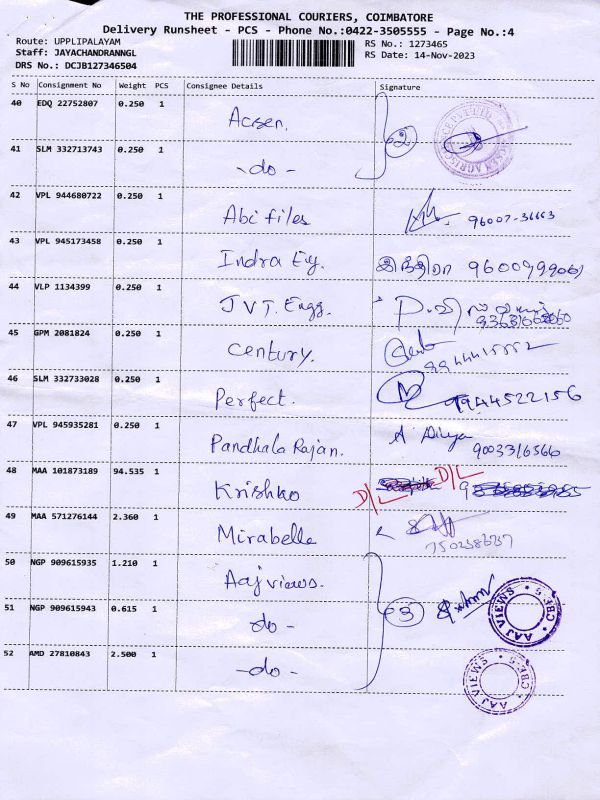 THE PROFESSIONAL COURIERS, COIMBATORE
Delivery Runsheet - PCS - Phone No.:0422-3505555 - Page No.:4
Route: UPPLIPALAYAM
Staff: JAYACHANDRANNGL
DRS No.: DCJB127346504
RS No.: 1273465
RS Date: 14-Nov-2023
S No Consignment No Weight PCS Consignee Details Signature
40 EDQ 22752807 0.250 1 Acsen. 2
41 SLM 332713743 0.250 1 -do-
42 VPL 944680722 0.250 1 Abi files 96007-36663
43 VPL 945173458 0.250 1 Indra Ey. இந்திரா
44 VLP 1134399 0.250 1 JVT. Engg.
45 GPM 2081824 0.250 1 Century. 9944415552
46 SLM 332733028 0.250 1 Perfect. 9944522156
47 VPL 945935281 0.250 1 Pandhala Rajan. A Divya 9003316566
48 MAA 101873189 94.535 1 Krishko D/L D/L
49 MAA 571276144 2.360 1 Mirabelle
50 NGP 909615935 1.210 1 Aaj views.
51 NGP 909615943 0.615 1 -do- 3 AAJ VIEWS CBE-5
52 AMD 27810843 2.500 1 -do- AAJ VIEWS CBE-5